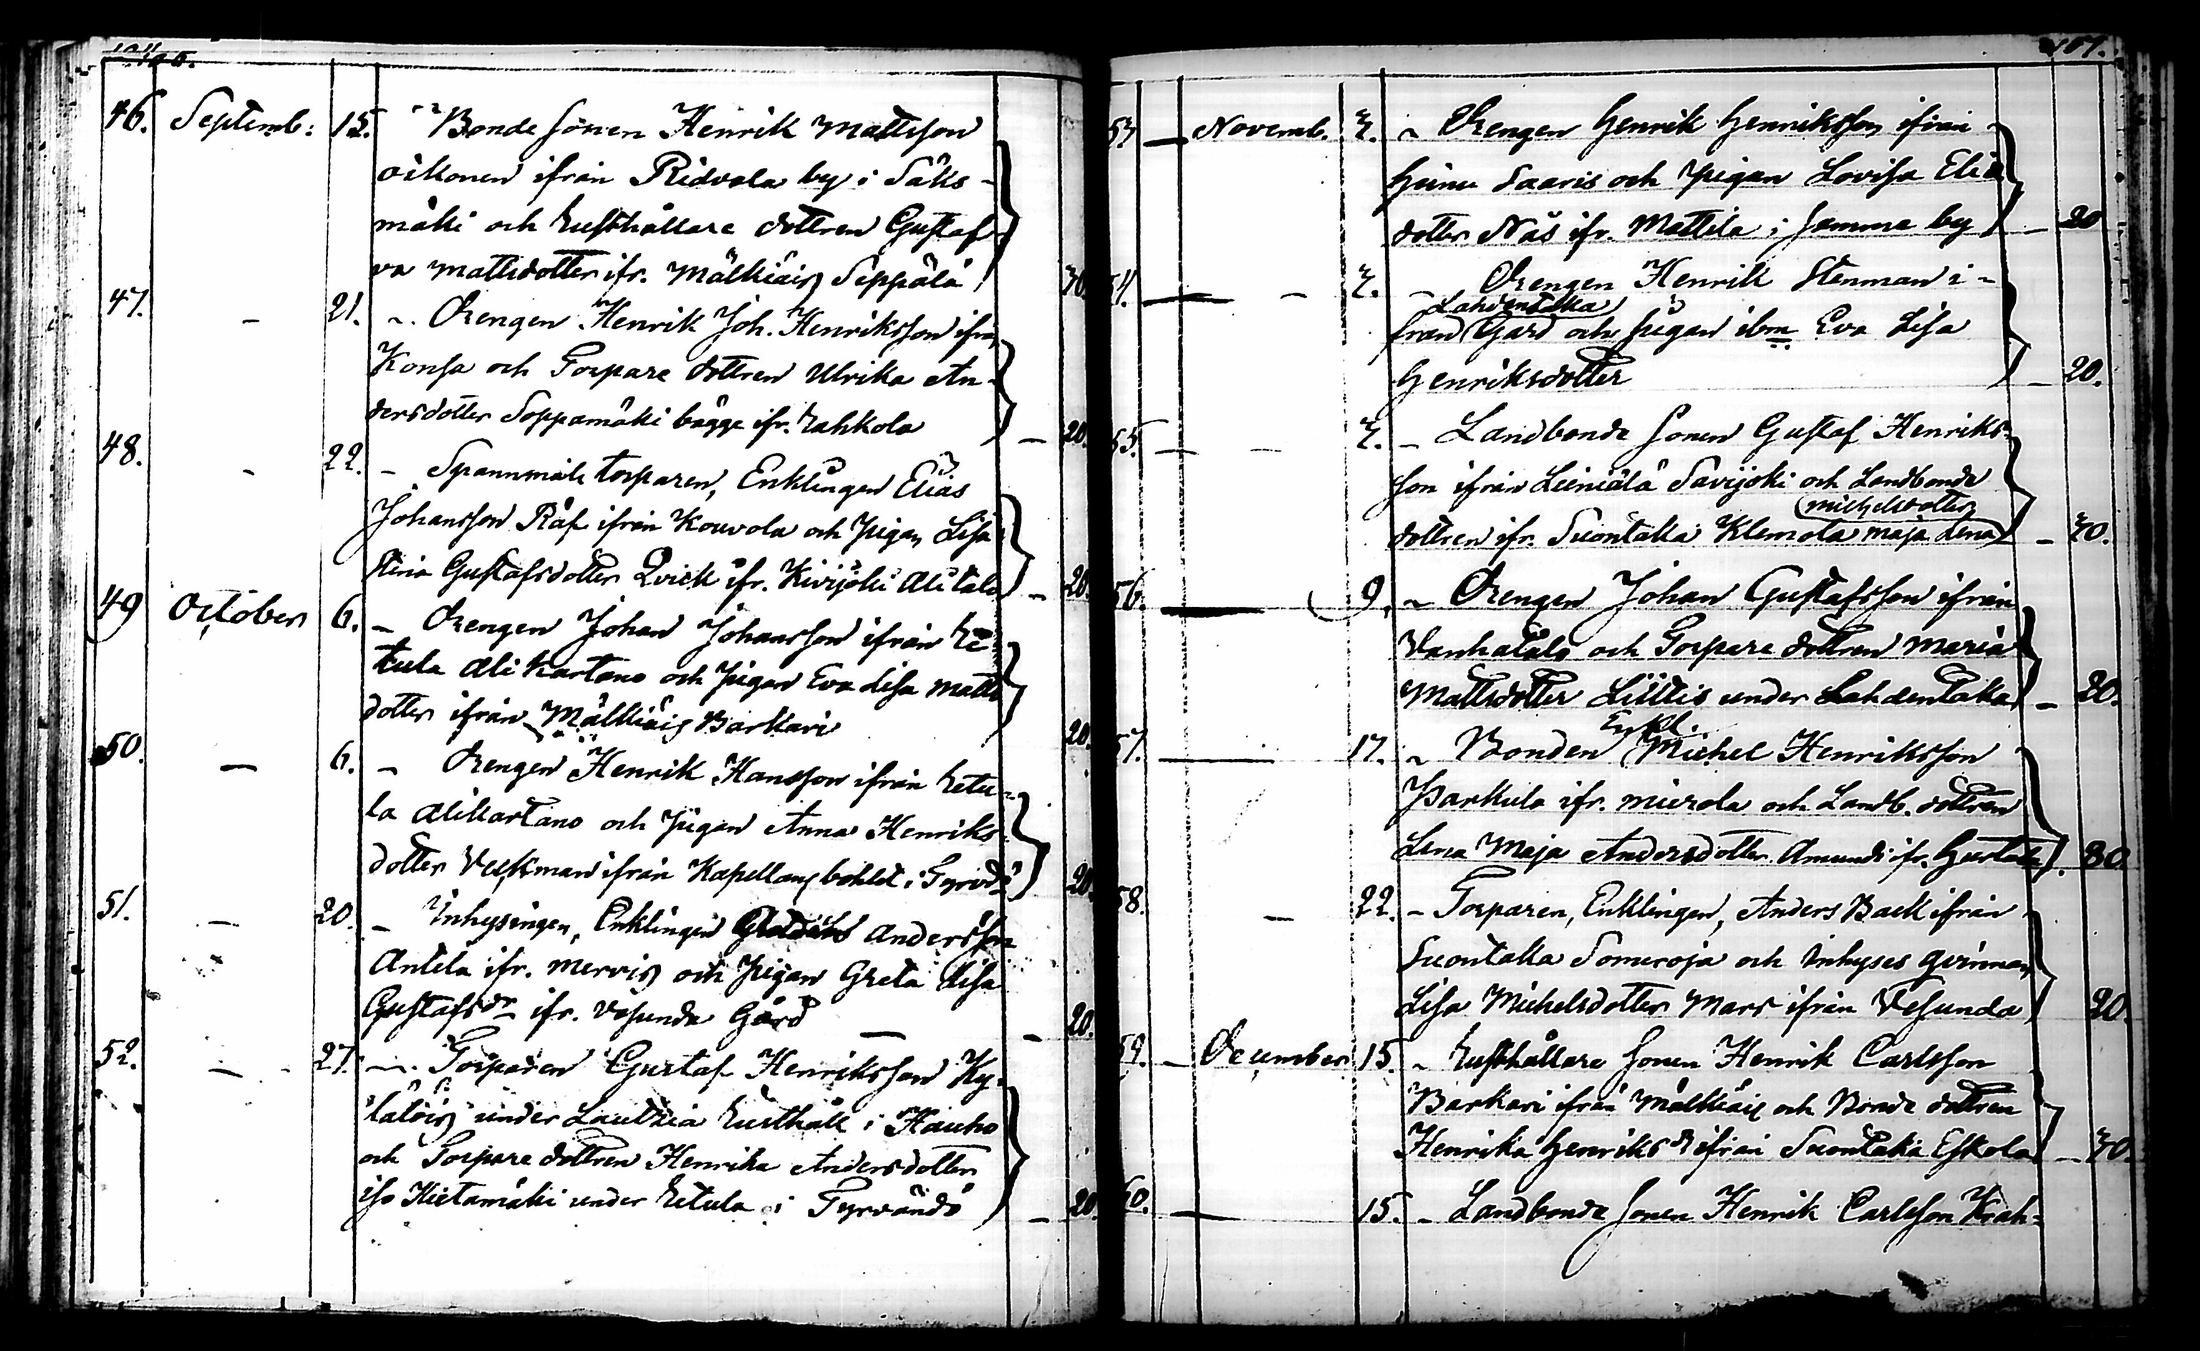 106.
46. Septemb: 15. Bonde sonen Henrik Mattsson
Oikonen ifrån Ridvala by i Säks-
mäki och Rusthållare dottren Gustaf-
va Mattsdotter ifr. Mälkiäis Seppälä
47. - 21. Drengen Henrik Joh. Henriksson ifrån
Konsa och Torpare dottren Ulrika An-
dersdotter Soppamäki bägge ifr. Rahkola 20.
48. - 22. - Spannmåls torparen, Enklingen Elias
Johansson Räf ifrån Kouvola och Pigan Lisa
Stina Gustafsdotter Qvick ifr. Kivijoki Alitalo - 20.
49 October 6. - Drengen Johan Johansson ifrån Re-
tula Alikartano och Pigan Eva Lisa Matts
dotter ifrån Mälkiäis Barkari 20.
50. - 6. - Drengen Henrik Hansson ifrån Retu-
la Alikartano och Pigan Anna Henriks-
dotter Veckman ifrån Kapellans bohlet i Tyrvändö 20.
51. - 20. - Inhysingen, Enklingen Andersson
Antela ifr. Mervis och Pigan Greta Lisa
Gustafsdr ifr. Vesunda Gård - 20.
52. - 27. - Torparen Gustaf Henriksson Ky-
lätöis under Lautsia Rusthåll i Hauho
och Torpare dottren Henrika Andersdotter
Iso Hietamäki under Retula i Tyrvändö - 20.
107.
53 - Novemb. 3. - Drengen Henrik Henriksson ifrån
Heinu Saaris och Pigan Lovisa Elia
dotter Näs ifr. Mattila i samma by - 20
54. - 3. - Drengen Henrik Stenman i-
Lahdentaka
från Gård och Pigan ibm Eva Lisa
Henriksdotter - 20.
55. - 3. - Landbonde sonen Gustaf Henriks-
son ifrån Leiniälä Savijoki och Landbonde
Michelsdotter
dottren ifr. Suontaka Klemola Maja Lena - 30.
56. 9. - Drengen Johan Gustafsson ifrån
Vanhatalo och Torpare dottren Maria
Mattsdotter Lillis under Lahdentaka - 20.
Enkl.
57. 17. - Bonden Michel Henriksson
Parkula ifr. Mierola och Landb. dottren
Lena Maja Andersdotter Amundi ifr. Hurtala 30
58. - 22. - Torparen, Enklingen, Anders Back ifrån
Suontaka Someroja och Inhyses qvinnan
Lisa Michelsdotter Mars ifrån Vesunda 20
59. - December 15. - Rusthållare sonen Henrik Carlsson
Barkari ifrån Mälkiäis och Bonde dottren
Henrika Henriksdr ifrån Suontaka Eskola - 30.
60. 15. - Landbonde sonen Henrik Carlsson Krah-